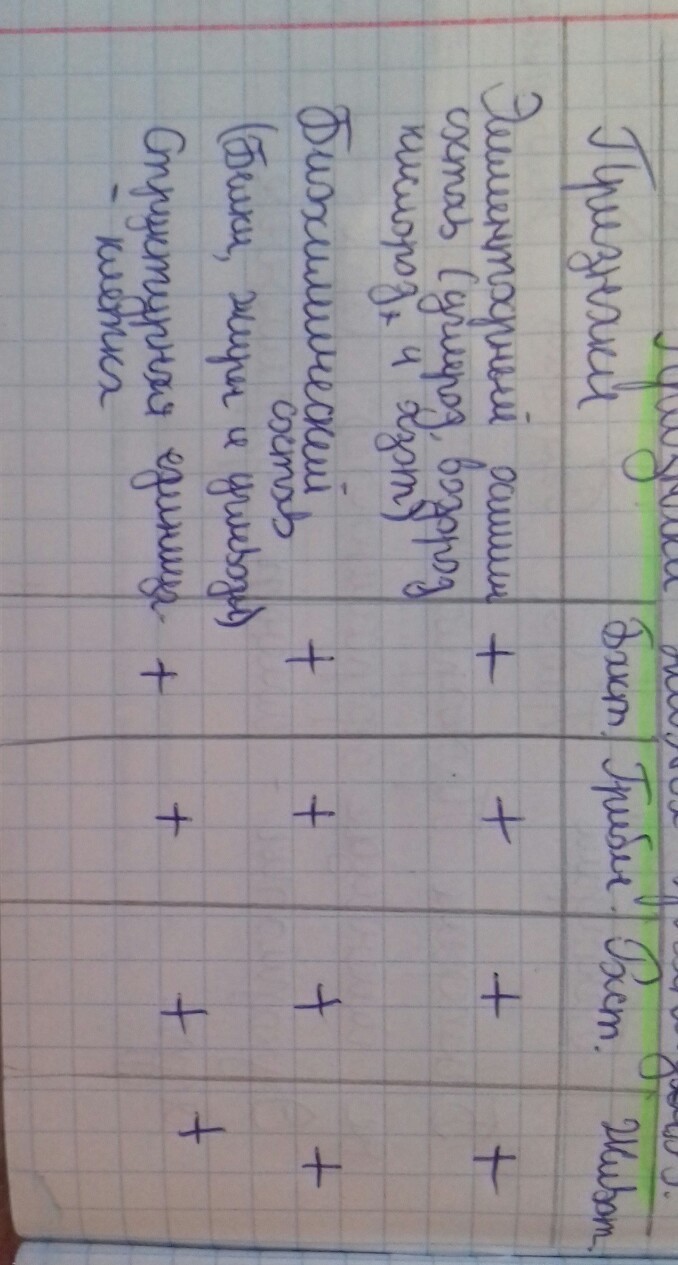 Признаки
Признаки Бакт. Грибы. Раст. Живот.
Элементарный химич
состав (углерод, водород
кислород, и азот) + + + +
Биохимический
состав
(Белки, жиры и углеводы) + + + +
Структурная единица - + + + +
клетка